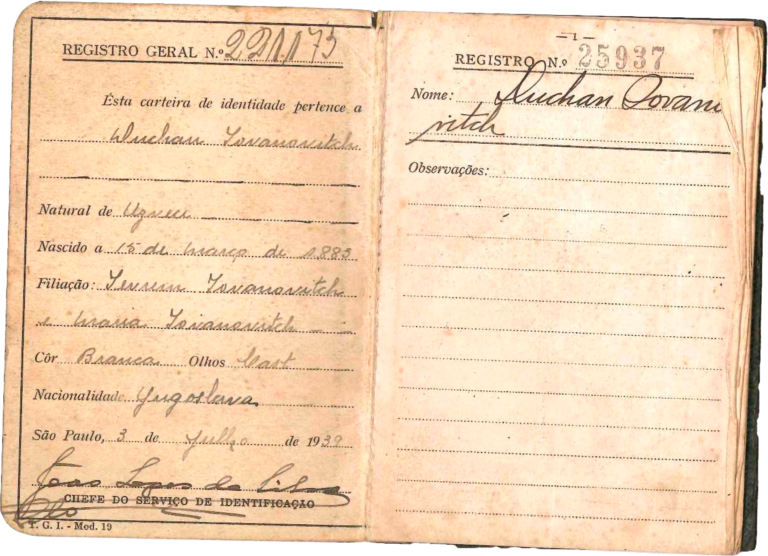 REGISTRO GERAL N.º 221175
Esta carteira de identidade pertence a
Duchan Iovanovitch
Natural de
Nascido a 15 de março de 1883
Filiação: Iovanovitch
e Maria Iovanovitch
Côr Branca Olhos Cast
Nacionalidade Yugoslava
São Paulo, 3 de Julho de 1939
João Lopes da Silva
CHEFE DO SERVIÇO DE IDENTIFICAÇÃO
T. G. I. - Mod. 19
— 1 —
REGISTRO N.º 25937
Nome: Duchan Iovano
vitch
Observações: